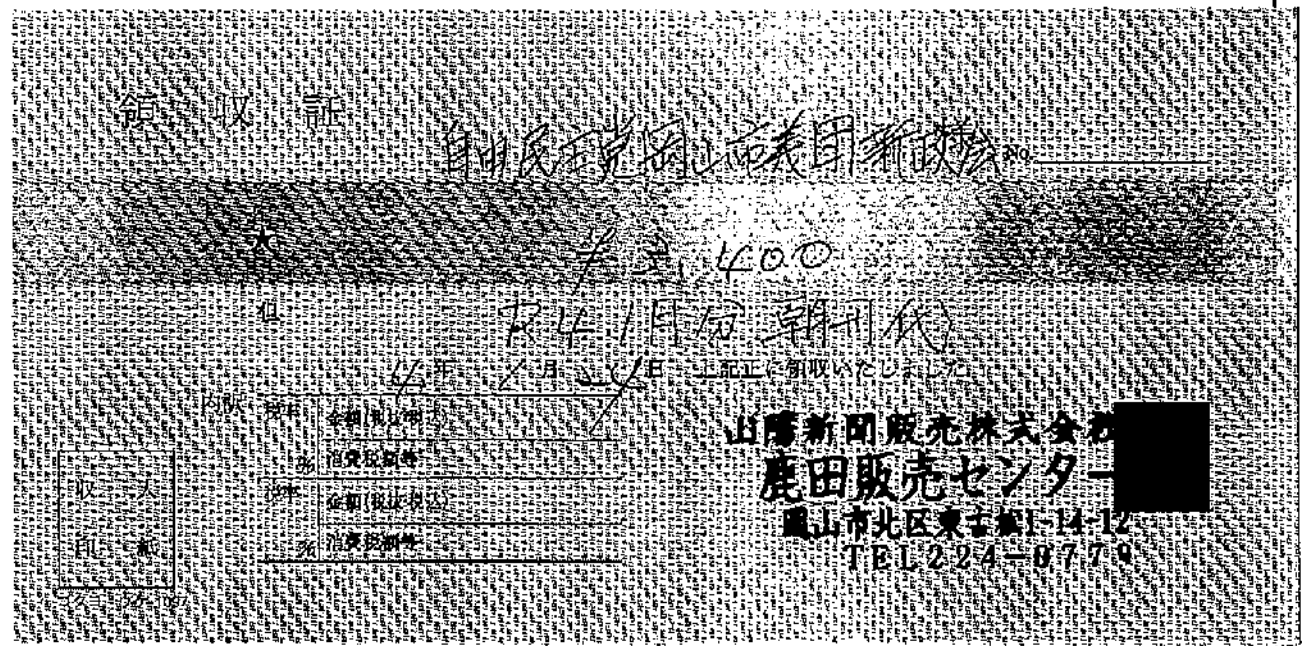 領収証
自由民主党岡山市議団新政会 様 No.
★
¥3,400
但 R4.1月分 朝刊代
4年 1月24日 上記正に領収いたしました
内訳
税率 % 金額(税抜・税込)
消費税額等
税率 % 金額(税抜・税込)
消費税額等
収入
印紙
山陽新聞販売株式会社
鹿田販売センター
岡山市北区東古松1-14-12
TEL224-0779